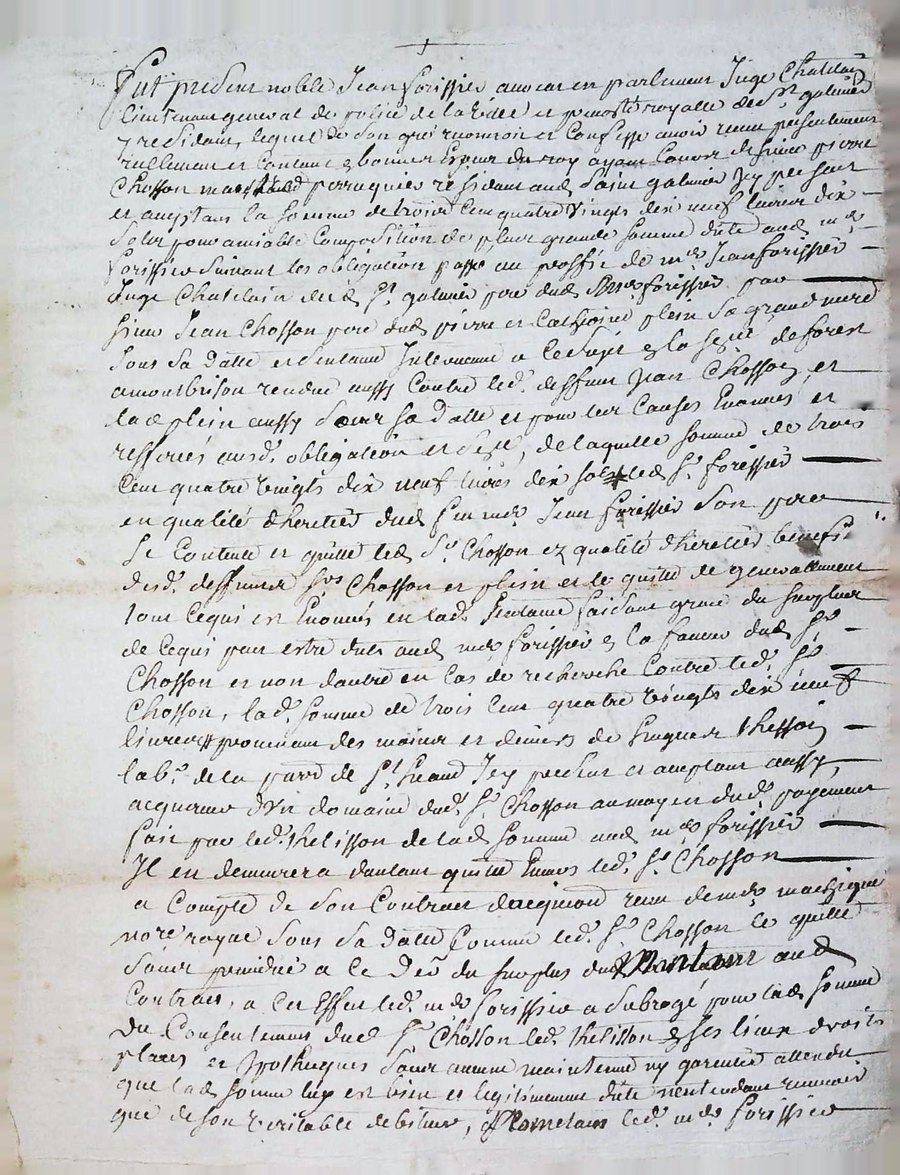 Fut present noble Jean forissier avocat en parlement Juge Chatelain
lieutenant general de police de la ville et prevosté royalle de St galmier
y residant, lequel de son gré reconnoit et Confesse avoir receu presentement
reellement et Contant en bonnes Especes du roy ayant Cours de sieur pierre
Chosson marchand perruquier residant aud saint galmier Icy present
et acceptant la somme de trois Cent quatre vingts dix neuf livres dix
sols pour amiable Composition de plus grande somme dûte aud me
forissier suivant les obligation passé au proffit de me Jean forissier
Juge Chatelain dud St galmier pere dud Sr me forissier par
sieur Jean Chosson pere dud pierre et Catherine plein sa grand mere
sous sa datte et sentence Intervenue a ce sujet en la de forest
a montbrison rendue aussy Contre led. deffunt Jean Chosson et
lad plein aussy sous sa datte et pour les Causes Enoncés et
refferés ausd. obligation et de laquelle somme de trois
Cent quatre vingts dix neuf livres dix sols led Sr forissier
en qualité d'heretier dud feu me Jean forissier son pere
se Contente et quitte led Sr Chosson en qualité d'heretier benefre
desd. deffunts Chosson et plein et le quitte de generallement
tout ce qui est Enoncés en lad. sentence faisant grace du surplus
de ce qui peut estre dub aud me forissier en la faveur dud Sr
Chosson et non d'autre en Cas de recherche Contre led. Sr
Chosson, lad. somme de trois Cent quatre vingts dix neuf
livres provenant des mains et deniers de thelisson
labr. de la parr de St Icy present et acceptant aussy,
acquereur d'un domaine dud. Sr Chosson au moyen dud. payement
fait par led. thelisson de lad somme aud me forissier
Il en demeurera d'autant quitte Envers led. Sr Chosson
a Compte de son Contrat d'acquion receu de me
nore royal sous sa datte Comme led. Sr Chosson le quitte
sans prejudice a ce deub du surplus du Montant aud
Contrat, a cet Effet led. me forissier a subrogé pour lad somme
du Consentement dud Sr Chosson led. thelisson en ses lieux droits
places et hypotheques sans aucune maintenue ny garentie attendu
que lad somme luy est bien et legitimement dûte n'entendant renoncer
que de son veritable debiteur, Promettant led. me forissier